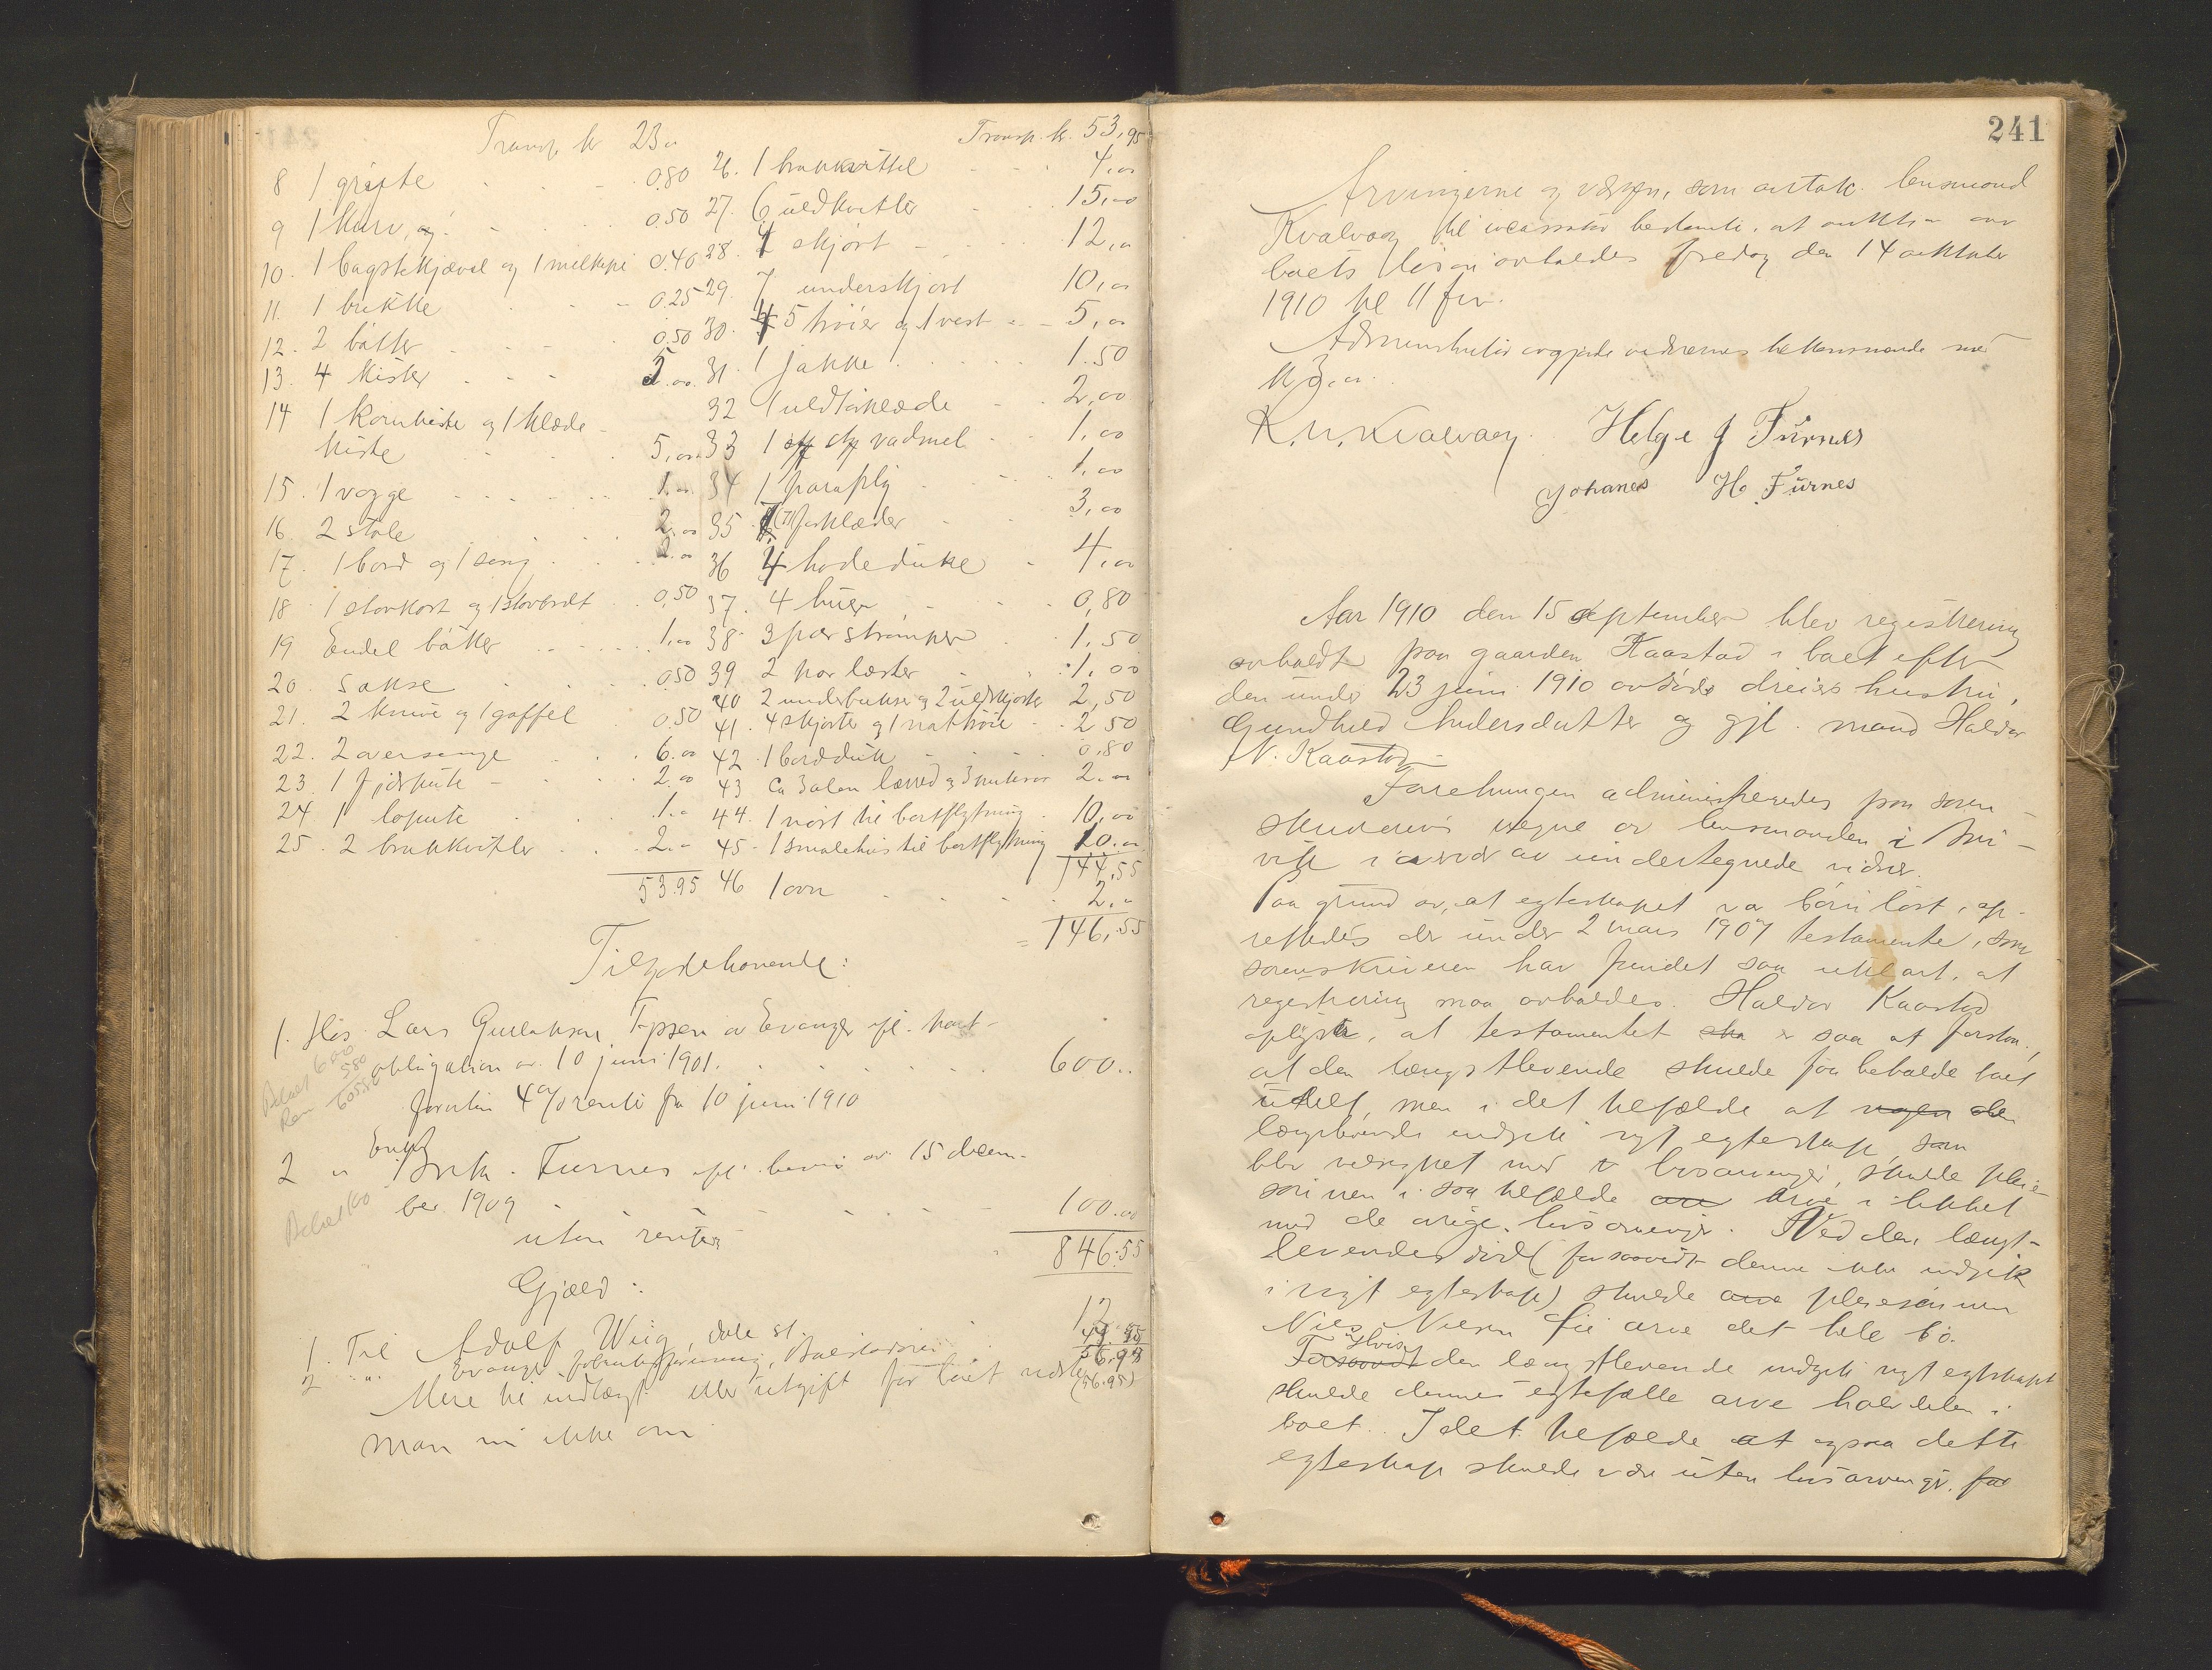 Transp. kr 23.-
8 1 grÿte 0.80
9 1 kurv, og 0.50
10. 1 bagstekjævel og 1 melkepi 0.40
11. 1 brikke 0.25
12. 2 bøtter 0.50
13. 4 kister 5.00
14 1 kornkiste og 1 klæde-
kiste 5,00
15. 1 vogge 1.00
16. 2 stole 2.00
17. 1 bord og 1 seng 2.00
18 1 stovkost og 1 stovbrett 0.50
19 Endel bøtter 1.00
20. sakse 0.50
21. 2 knive og 1 gaffel 0.50
22. 2 oversenge 6.00
23. 1 fjærpute 2.00
24 1 loputе 1.-
25. 2 brukkvitler 2.-
53.95
Transp. kr. 53,95
26. 1 brukkvittel 4,00
27. 6 uldkvitler 15,00
28. 4 skjørt 12,00
29. 7 underskjørt 10,00
30. 5 trøier og 1 vest 5,00
31. 1 jakke 1.50
32 1 uldtørklæde 2,00
33 1 vadmel 1,00
34 1 paraply 1,00
35 forklæder 3,00
36 4 hodeduke 4,00
37. 4 huer 0,80
38. 3 par strømper 1,50
39 2 par læster 1,00
40 2 underbukser og 2 uldskjorter 2,50
41. 4 skjorter og 1 nattrøie 2.50
42 1 bordduk 0.80
43 Ca 3 alen lærred og 3 2.00
44. 1 nøst til bortflytning 10,00
45. 1 smalehus til bortflytning 10.00
144.55
46 1 ovn 2.-
= 146,55
Tilgodehavende:
1. Hos Lars Gullaksen av Evanger ifl. pant-
obligation av 10 juni 1901. 600..
foruten 4% rente fra 10 juni 1910
2 " Furnes ifl. bevis av 15 decem-
ber 1909 100.00
uten renter
846.55
Gjæld:
1. Til Adolf Wiig, Dale st. 12
2 " Evanger
56.95
Mere til indtægt eller utgift for boet vidste
man nu ikke om
241
Arvingerne og værgen, som antok lensmand
Kvalvaag til incassator bestemte, at auktion over
boets løsøre avholdes fredag den 14 oktober
1910 kl 11 fm.
Administrator avgjorde vidnernes tilkommende med
kr 3.00.
K. N. Kvalvaag. Helge J Furnes
Johanes H. Furnes
Aar 1910 den 15 september blev registrering
avholdt paa gaarden Kaastad i boet efter
den under 23 juni 1910 avdøde dreiers hustru,
Gundhild Andersdatter og gjl. mand Haldor
N. Kaastad
Forretningen administreredes paa soren-
skriverens vegne av lensmanden i Bru-
vik i nærvær av undertegnede vidner.
Paa grund av, at egteskapet var børnløst, op-
rettedes der under 2 mars 1907 testamente, som
sorenskriveren har fundet saa uklart, at
registrering maa avholdes. Haldor Kaastad
oplyste, at testamentet ska er saa at forstaa,
at den længstlevende skulde faa beholde boet
udelt, men i det tilfælde at nogen den
længstlevende indgik nyt egteskap, som
blev velsignet med livsarvinger, skulde pleie-
sønnen i saa tilfælde arve i likhet
med de øvrige livsarvinger. Ved den længst-
levendes død (forsaavidt denne ikke indgik
i nyt egteskap) skulde pleiesønnen
Nils Nilsen Lie arve det hele bo.
Hvis
Forsaavidt den længstlevende indgik nyt egteskap
skulde dennes egtefælle arve halvdelen i
boet. I det tilfælde at ogsaa dette
egteskap skulde være uten livsarvinger, før